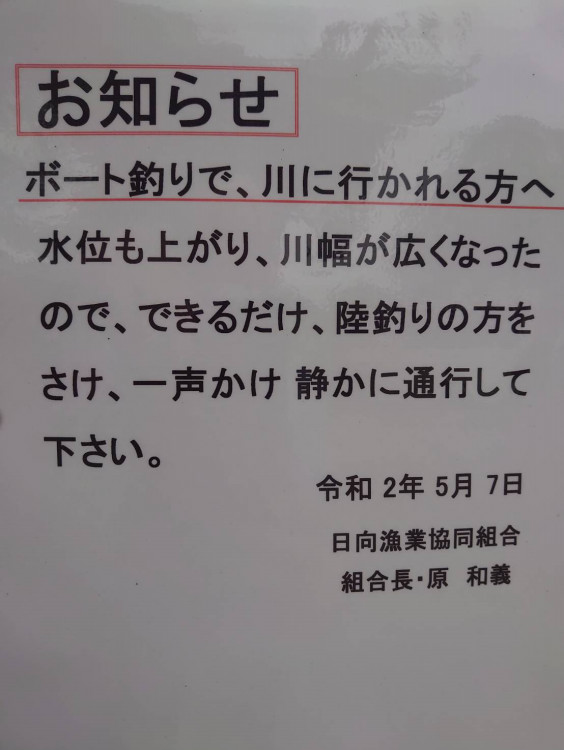 お知らせ
ボート釣りで、川に行かれる方へ
水位も上がり、川幅が広くなった
ので、できるだけ、陸釣りの方を
さけ、一声かけ 静かに通行して
下さい。
令和 2年 5月 7日
日向漁業協同組合
組合長・原 和義